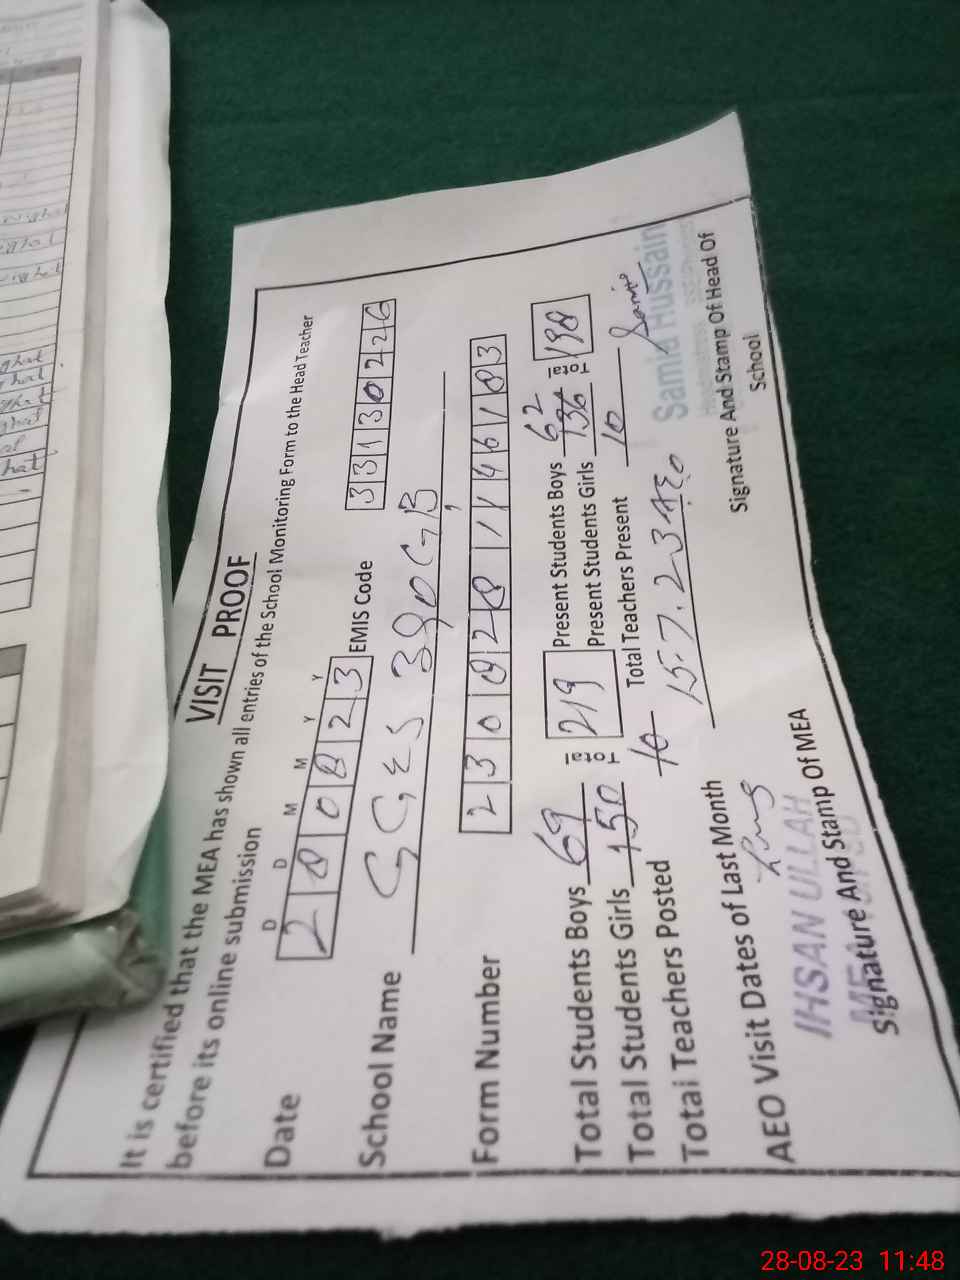 VISIT PROOF
It is certified that the MEA has shown all entries of the School Monitoring Form to the Head Teacher
before its online submission
D D M M Y Y
Date 280823 EMIS Code 33130226
School Name GGES 380 GB
Form Number 2308281146183
Total Students Boys 69 Total 219 Present Students Boys 62 Total 198
Total Students Girls 150 Present Students Girls 136
Total Teachers Posted 10 Total Teachers Present 10
AEO Visit Dates of Last Month 15.7.23 AEO
IHSAN ULLAH
Samia Hussain
Signature And Stamp Of MEA
Signature And Stamp Of Head Of
School
28-08-23 11:48